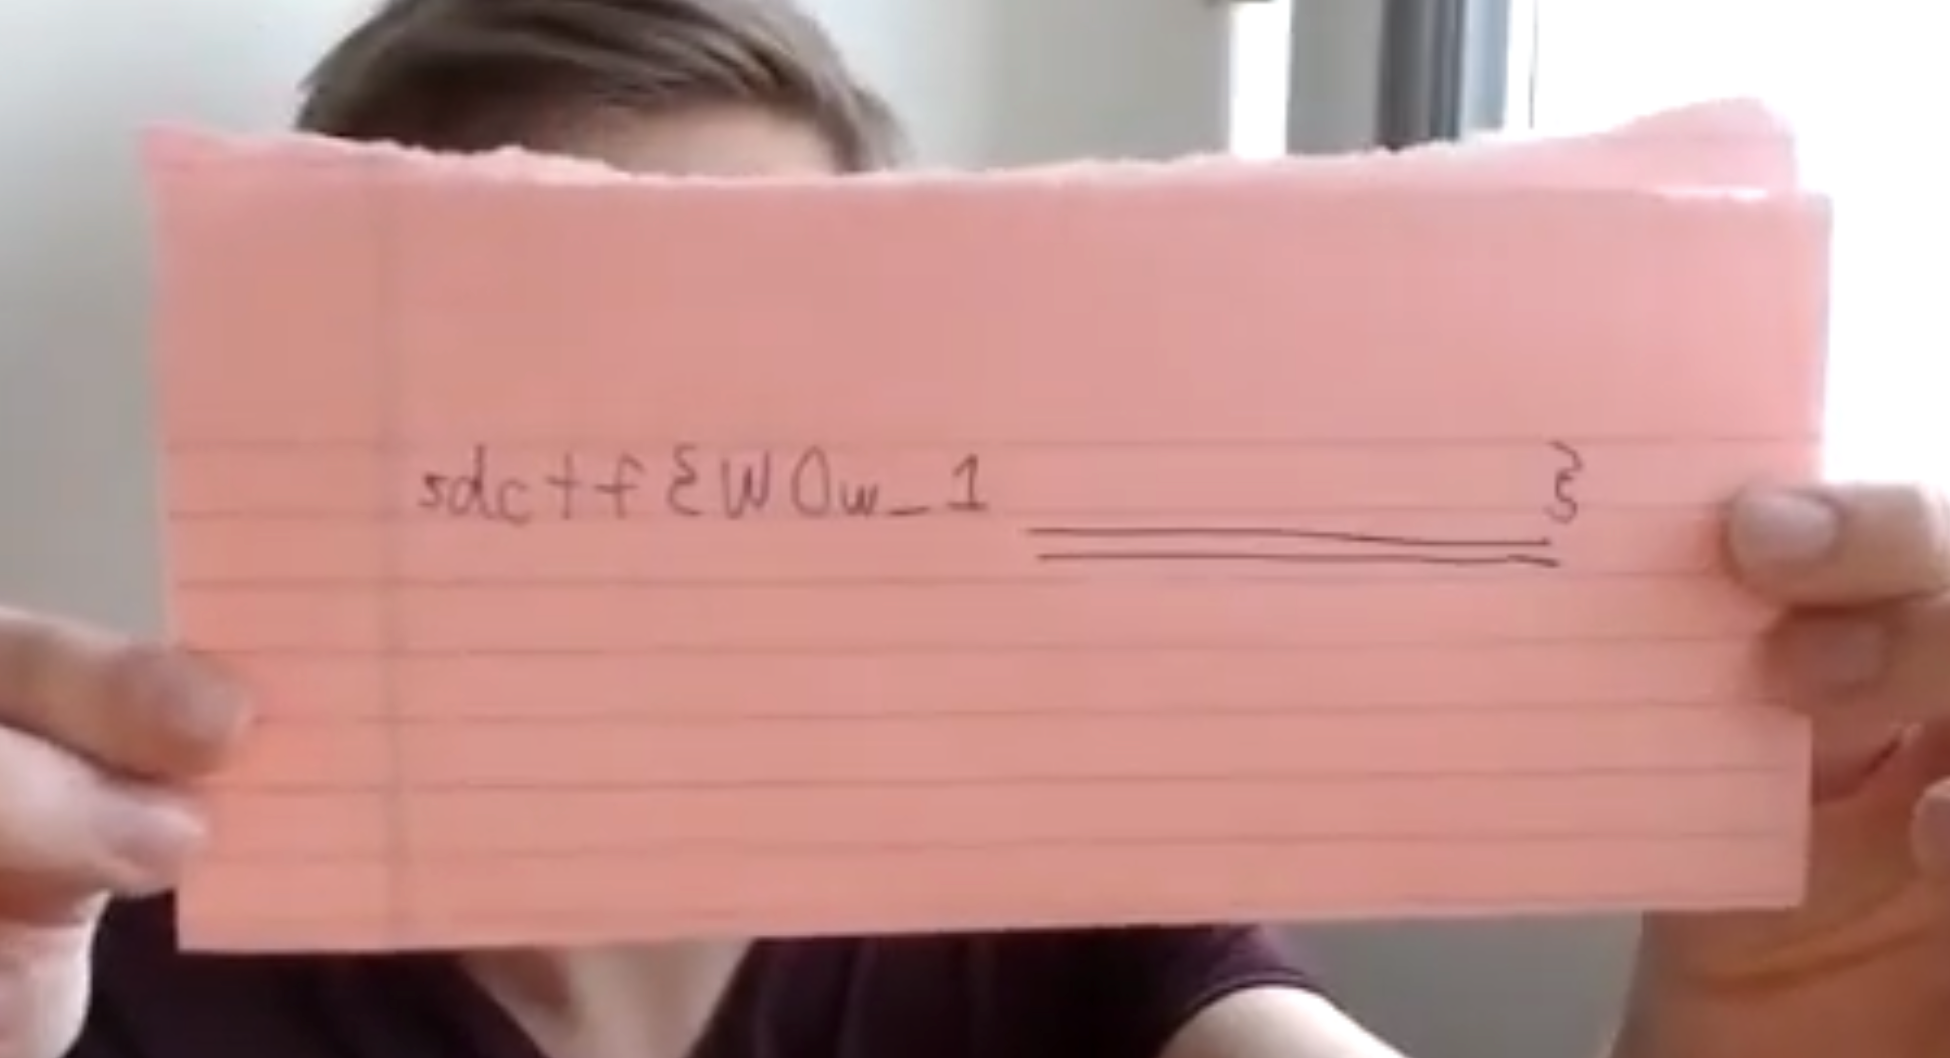 sdctf{W0w_1 }